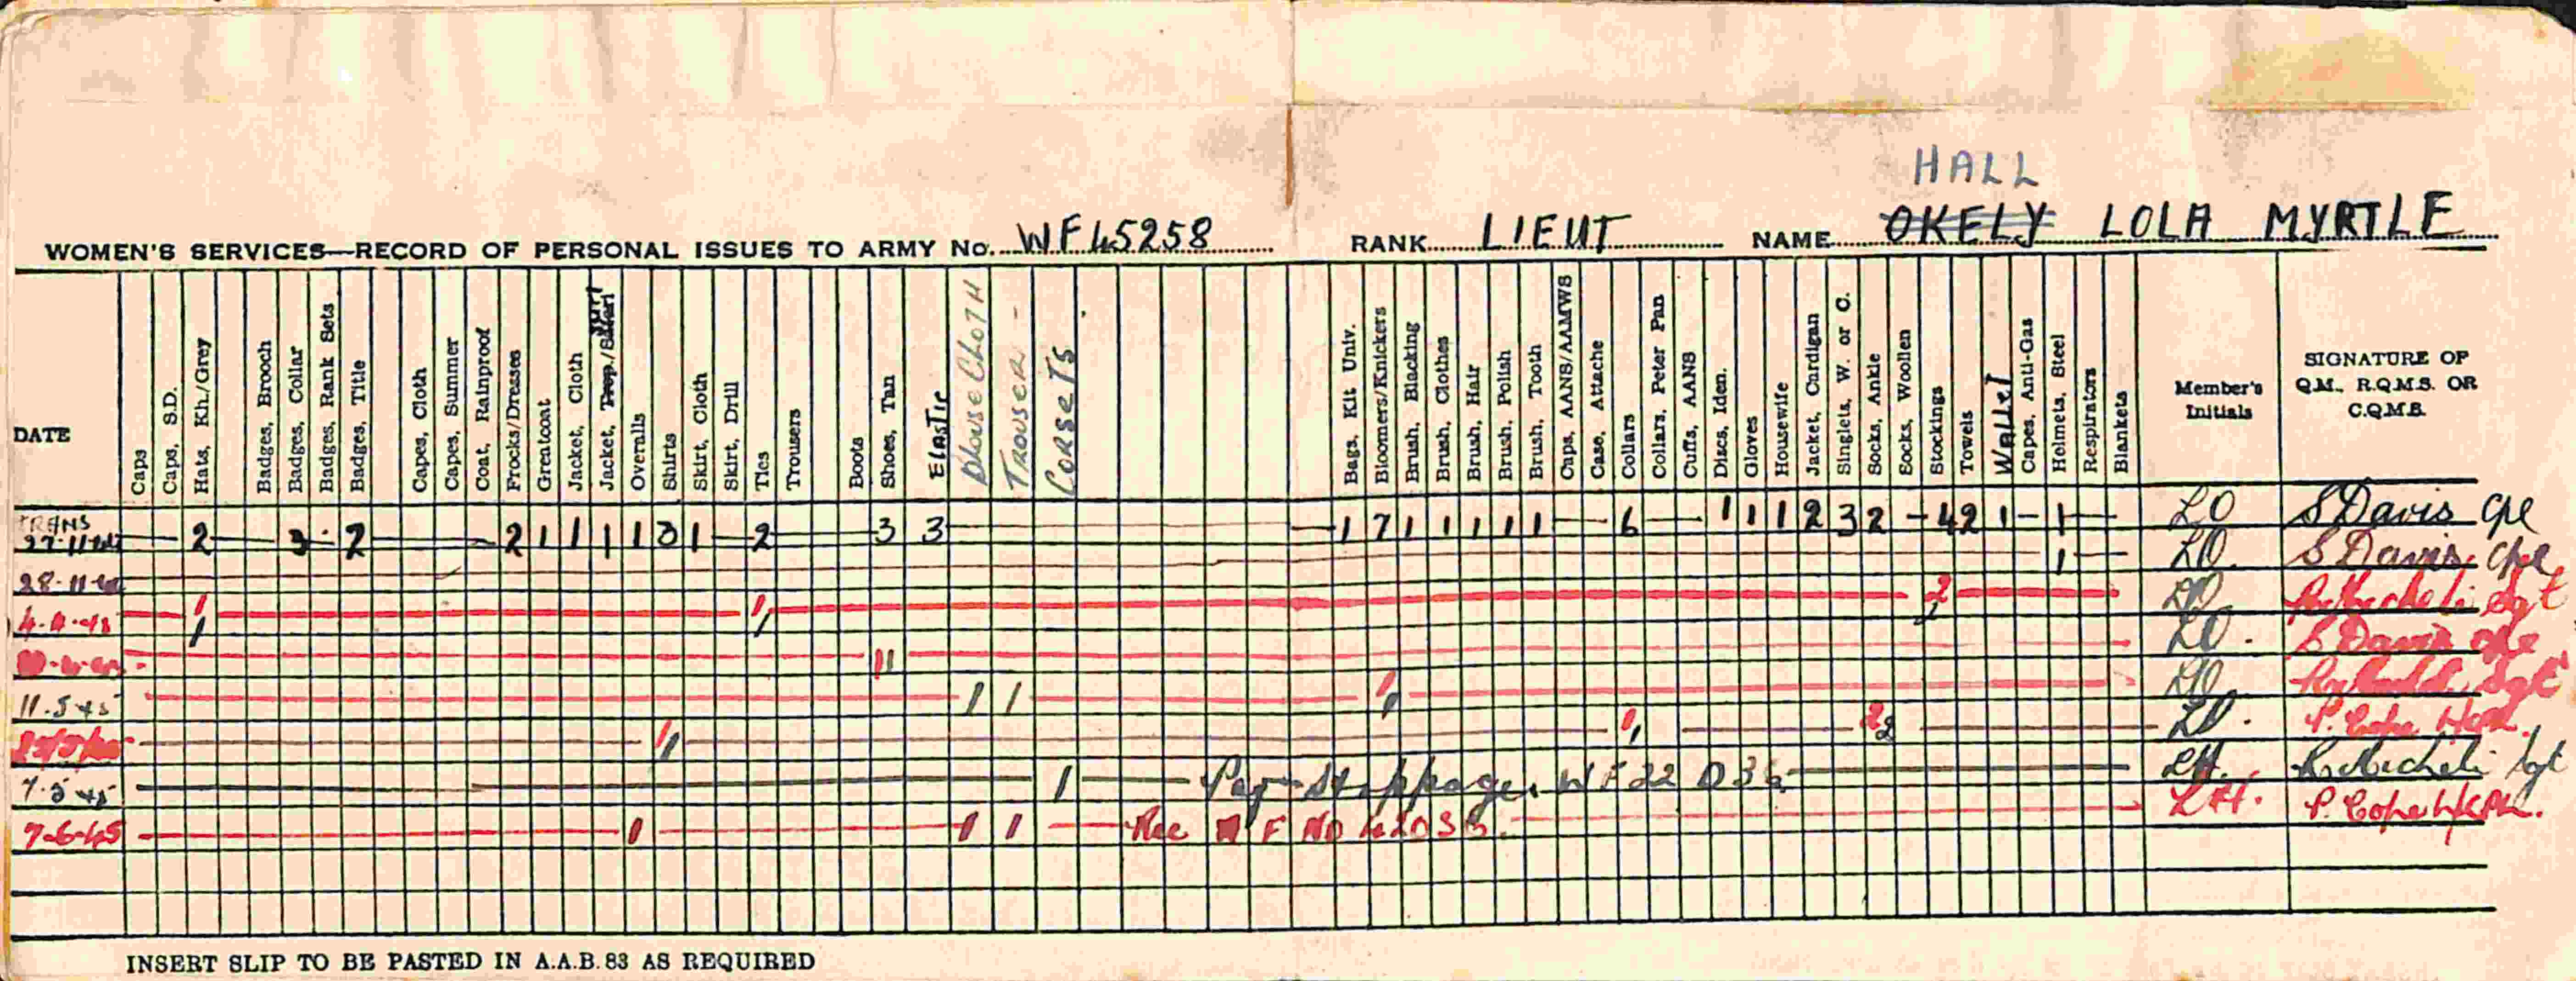 HALL
WOMEN'S SERVICES—RECORD OF PERSONAL ISSUES TO ARMY No. WF45258 RANK LIEUT NAME OKELY LOLA MYRTLE
DATE Caps Caps, S.D. Hats, Kh./Grey Badges, Brooch Badges, Collar Badges, Rank Sets Badges, Title Capes, Cloth Capes, Summer Coat, Rainproof Frocks/Dresses Greatcoat Jacket, Cloth Jacket, Trop./Safari Overalls Shirts Skirt, Cloth Skirt, Drill Ties Trousers Boots Shoes, Tan Elastic Blouse Cloth Trouser - Corsets Bags, Kit Univ. Bloomers/Knickers Brush, Blacking Brush, Clothes Brush, Hair Brush, Polish Brush, Tooth Caps, AANS/AAMWS Case, Attache Collars Collars, Peter Pan Cuffs, AANS Discs, Iden. Gloves Housewife Jacket, Cardigan Singlets, W. or C. Socks, Ankle Socks, Woollen Stockings Towels Wallet Capes, Anti-Gas Helmets, Steel Respirators Blankets Member's Initials SIGNATURE OF Q.M., R.Q.M.S. OR C.Q.M.S.
TRANS
2 3 2 2 1 1 1 1 3 1 2 3 3 1 7 1 1 1 1 1 6 1 1 1 2 3 2 - 4 2 1 - 1 LO S Davis Cpl
1 LO. S Davis Cpl
1 1 2 LO Sgt
11 LO. S Davis Cpl
11.5.45 1 1 1 LO Sgt
11 1 2 2 LO. P. Cope
7.5.45 1 Pay Stoppage. WF22 LH. R Micheli Sgt
7-6-45 1 1 1 Rec F NO LH. P. Cope
INSERT SLIP TO BE PASTED IN A.A.B. 83 AS REQUIRED